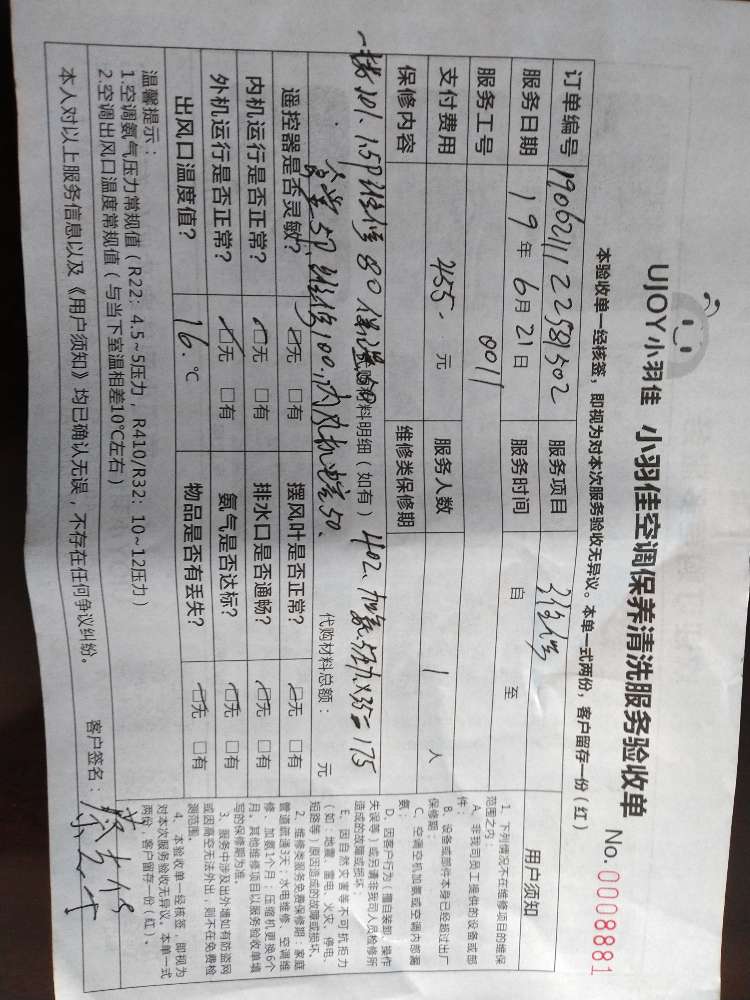 UJOY小羽佳 小羽佳空调保养清洗服务验收单 No. 0008881
本验收单一经核签，即视为对本次服务验收无异议。本单一式两份，客户留存一份（红）
订单编号 1906211122581502 服务项目
服务日期 19年6月21日 服务时间 自 至
服务工号 0011
支付费用 455. 元 服务人数 1 人
保修内容 维修类保修期
一楼201、1.5P维修80 采购材料明细（如有）402、加氟.5压力X35=175
5P、维修100, 内风机电容50.
代购材料总额： 元
遥控器是否灵敏? ☑无 □有 摆风叶是否正常? ☑无 □有
内机运行是否正常? ☑无 □有 排水口是否通畅? ☑无 □有
外机运行是否正常? ☑无 □有 氨气是否达标? ☑无 □有
出风口温度值? 16.℃ 物品是否有丢失? ☑无 □有
温馨提示：
1.空调氨气压力常规值（R22：4.5~5压力，R410/R32：10~12压力）
2.空调出风口温度常规值（与当下室温相差10℃左右）
本人对以上服务信息以及《用户须知》均已确认无误，不存在任何争议纠纷。
客户签名：
用户须知
1. 下列情况不在维修项目的维保
范围之内
A、非我司员工提供的设备或部
件；
B、设备或部件本身已经超过出厂
保修期；
C、空调空机加氨或空调内部漏
氨；
D、因客户行为（擅自装卸、操作
失误等）或另请非我司人员检修所
造成的故障或损坏；
E、因自然灾害等不可抗拒力
（如：地震、雷电、火灾、停电、
短路等）原因造成的故障或损坏。
2、维修类服务免费保修期：家庭
管道疏通3天；水电维修、空调维
修、加氨1个月；压缩机更换6个
月，其他维修项目以服务验收单填
写的保修期为准。
3、服务中涉及出外墙如有防盗网
或因高空无法外出，则不在免费检
测范围。
4、本验收单一经核签，即视为
对本次服务验收无异议。本单一式
两份，客户留存一份（红）。